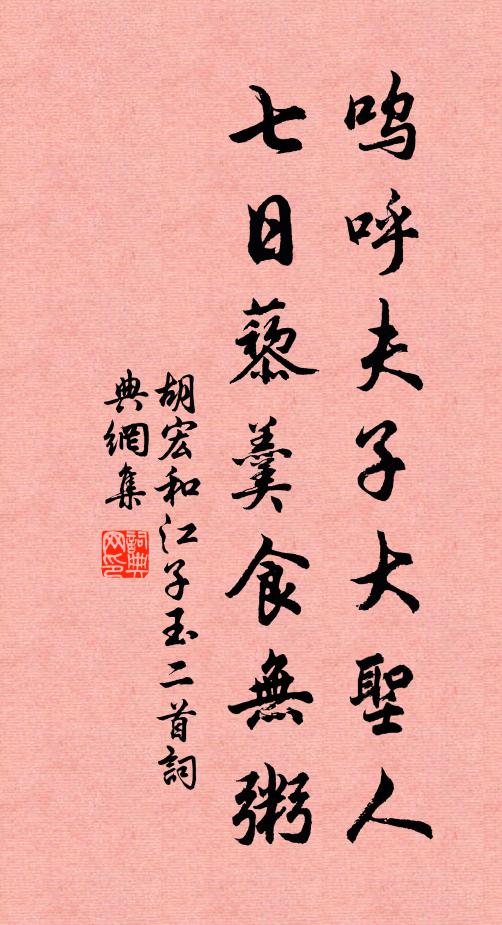 嗚呼夫子大聖人
七日藜羹食無粥
胡宏和江子玉二首詞
典網集
詞典
网印